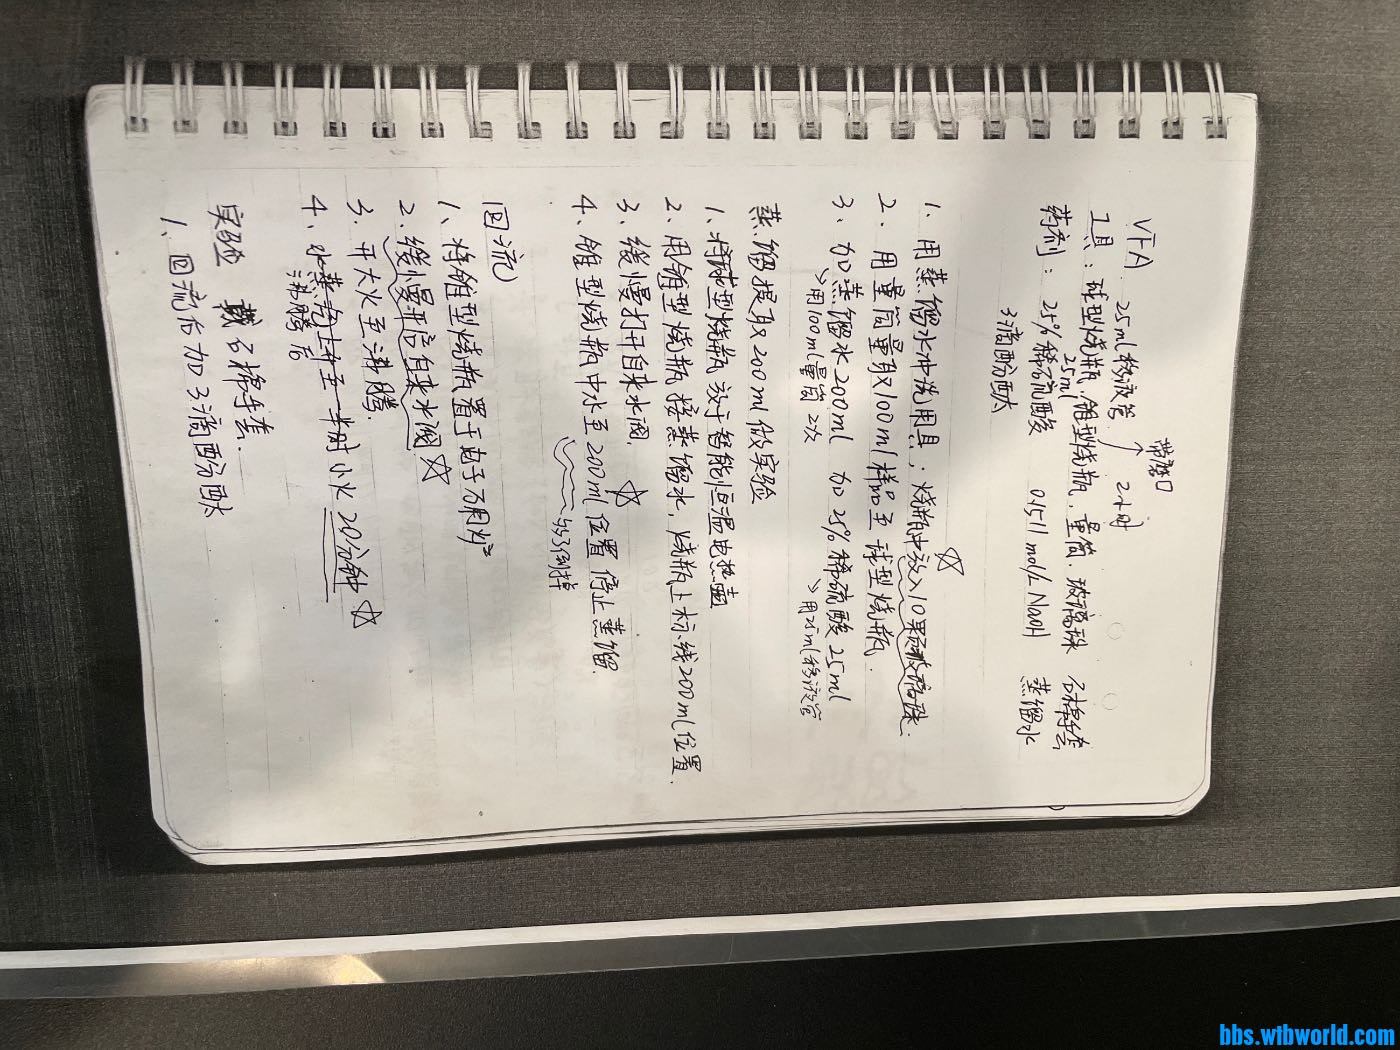 VFA 25ml移液管 2小时
带磨口
工具：球型烧瓶，锥型烧瓶，量筒，玻璃珠 石棉手套
25ml
药剂： 25%稀硫酸 0.1511 mol/L NaOH 蒸馏水
3滴酚酞
1. 用蒸馏水冲洗用具，烧瓶中放入10颗玻璃珠.
2. 用量筒量取100ml样品至球型烧瓶.
3. 加蒸馏水200ml 加25%稀硫酸25ml
用100ml量筒2次 用25ml移液管
蒸馏提取200ml做实验
1. 将球型烧瓶放于智能恒温电热套
2. 用锥型烧瓶接蒸馏水，烧瓶上标线200ml位置.
3. 缓慢打开自来水阀.
4. 锥型烧瓶中水至200ml位置停止蒸馏.
回流
1、将锥型烧瓶置于电子万用炉
2、缓慢开启自来水阀
3. 开大火至沸腾.
4. 水蒸气上升至一半时小火20分钟
沸腾后
实验 戴石棉手套.
1、回流后加3滴酚酞
bbs.wtbworld.com